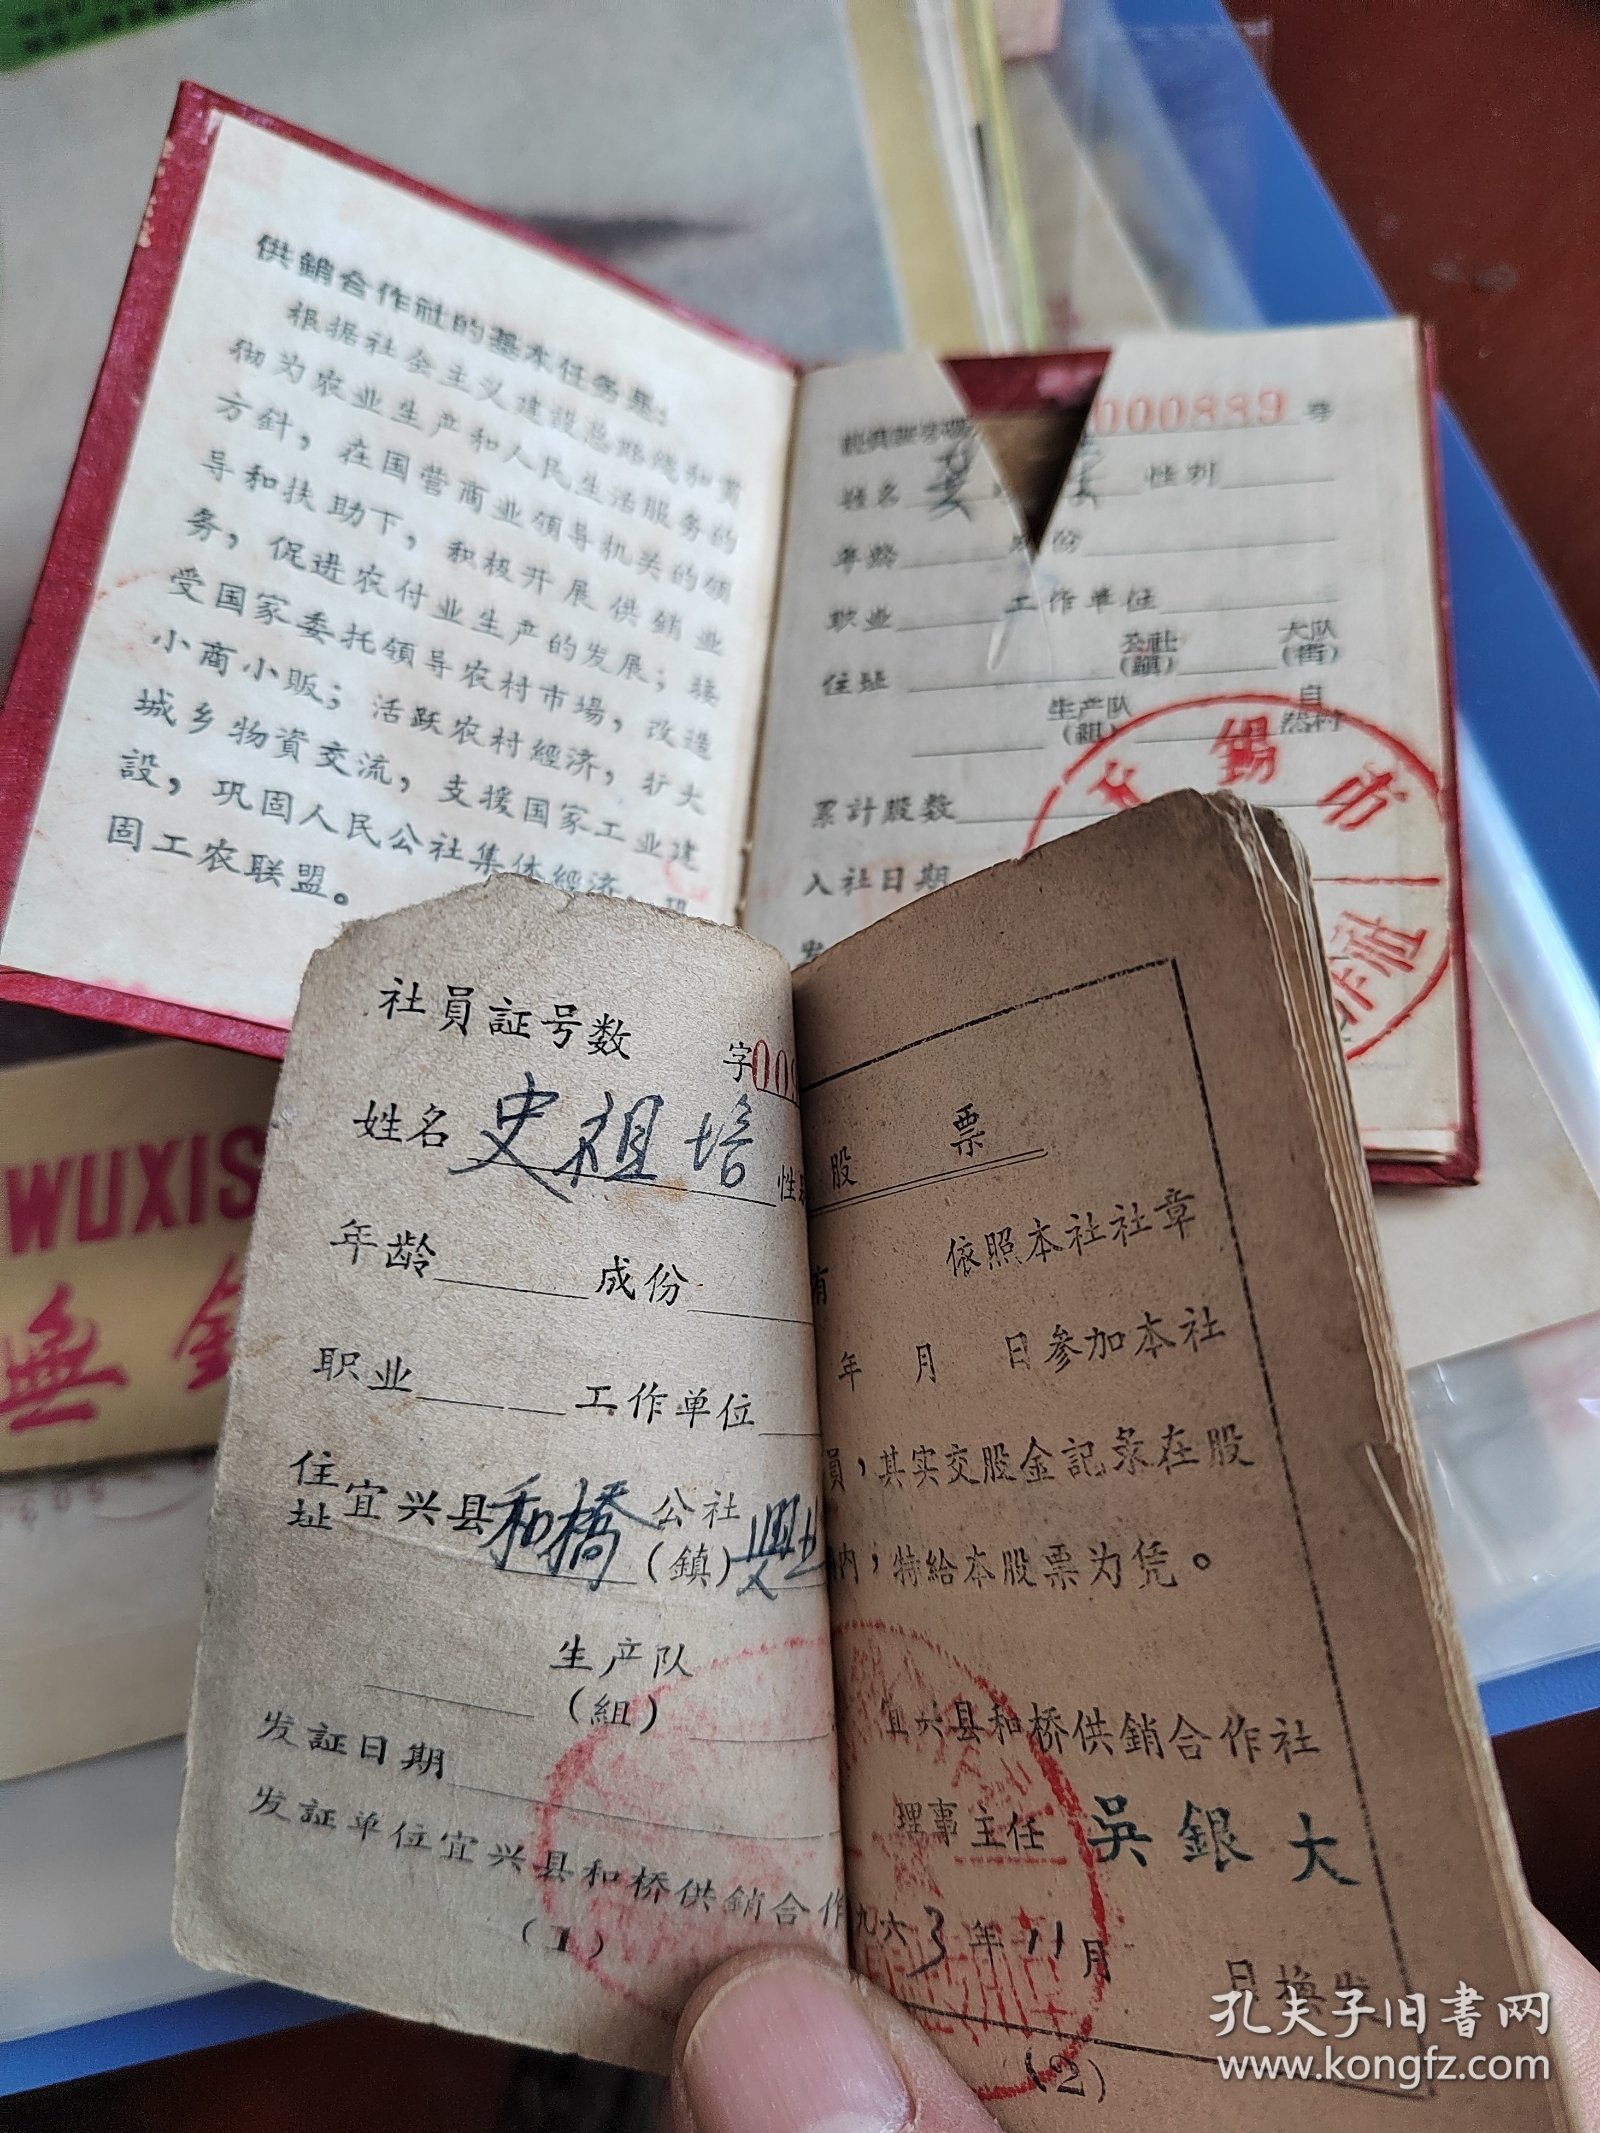 供銷合作社的基本任务是:
根据社会主义建設总路线和貫
彻为农业生产和人民生活服务的
方針，在国营商业领导机关的领
导和扶助下，积极开展供銷业
务，促进农付业生产的发展；接
受国家委托領导农村市場，改造
小商小販；活跃农村經济，扩大
城乡物資交流，支援国家工业建
設，巩固人民公社集体經济，巩
固工农联盟。
000889号
姓名 性別
年龄 成份
职业 工作单位
住址 公社(鎮) 大队(街)
生产队(組) 自然村
累計股数
入社日期
发
錫市
社員証号数 字00
姓名 史祖培 性
年龄 成份
职业 工作单位
住址 宜兴县 和橋 公社(鎮)
生产队(組)
发証日期
发証单位宜兴县和桥供銷合作
(1)
股票
有 依照本社社章
年 月 日参加本社
員，其实交股金記录在股
内，特給本股票为凭。
宜兴县和桥供銷合作社
理事主任 吳銀大
九六3年11月 日換发
(2)
WUXIS
無錫
孔夫子旧书网
www.kongfz.com